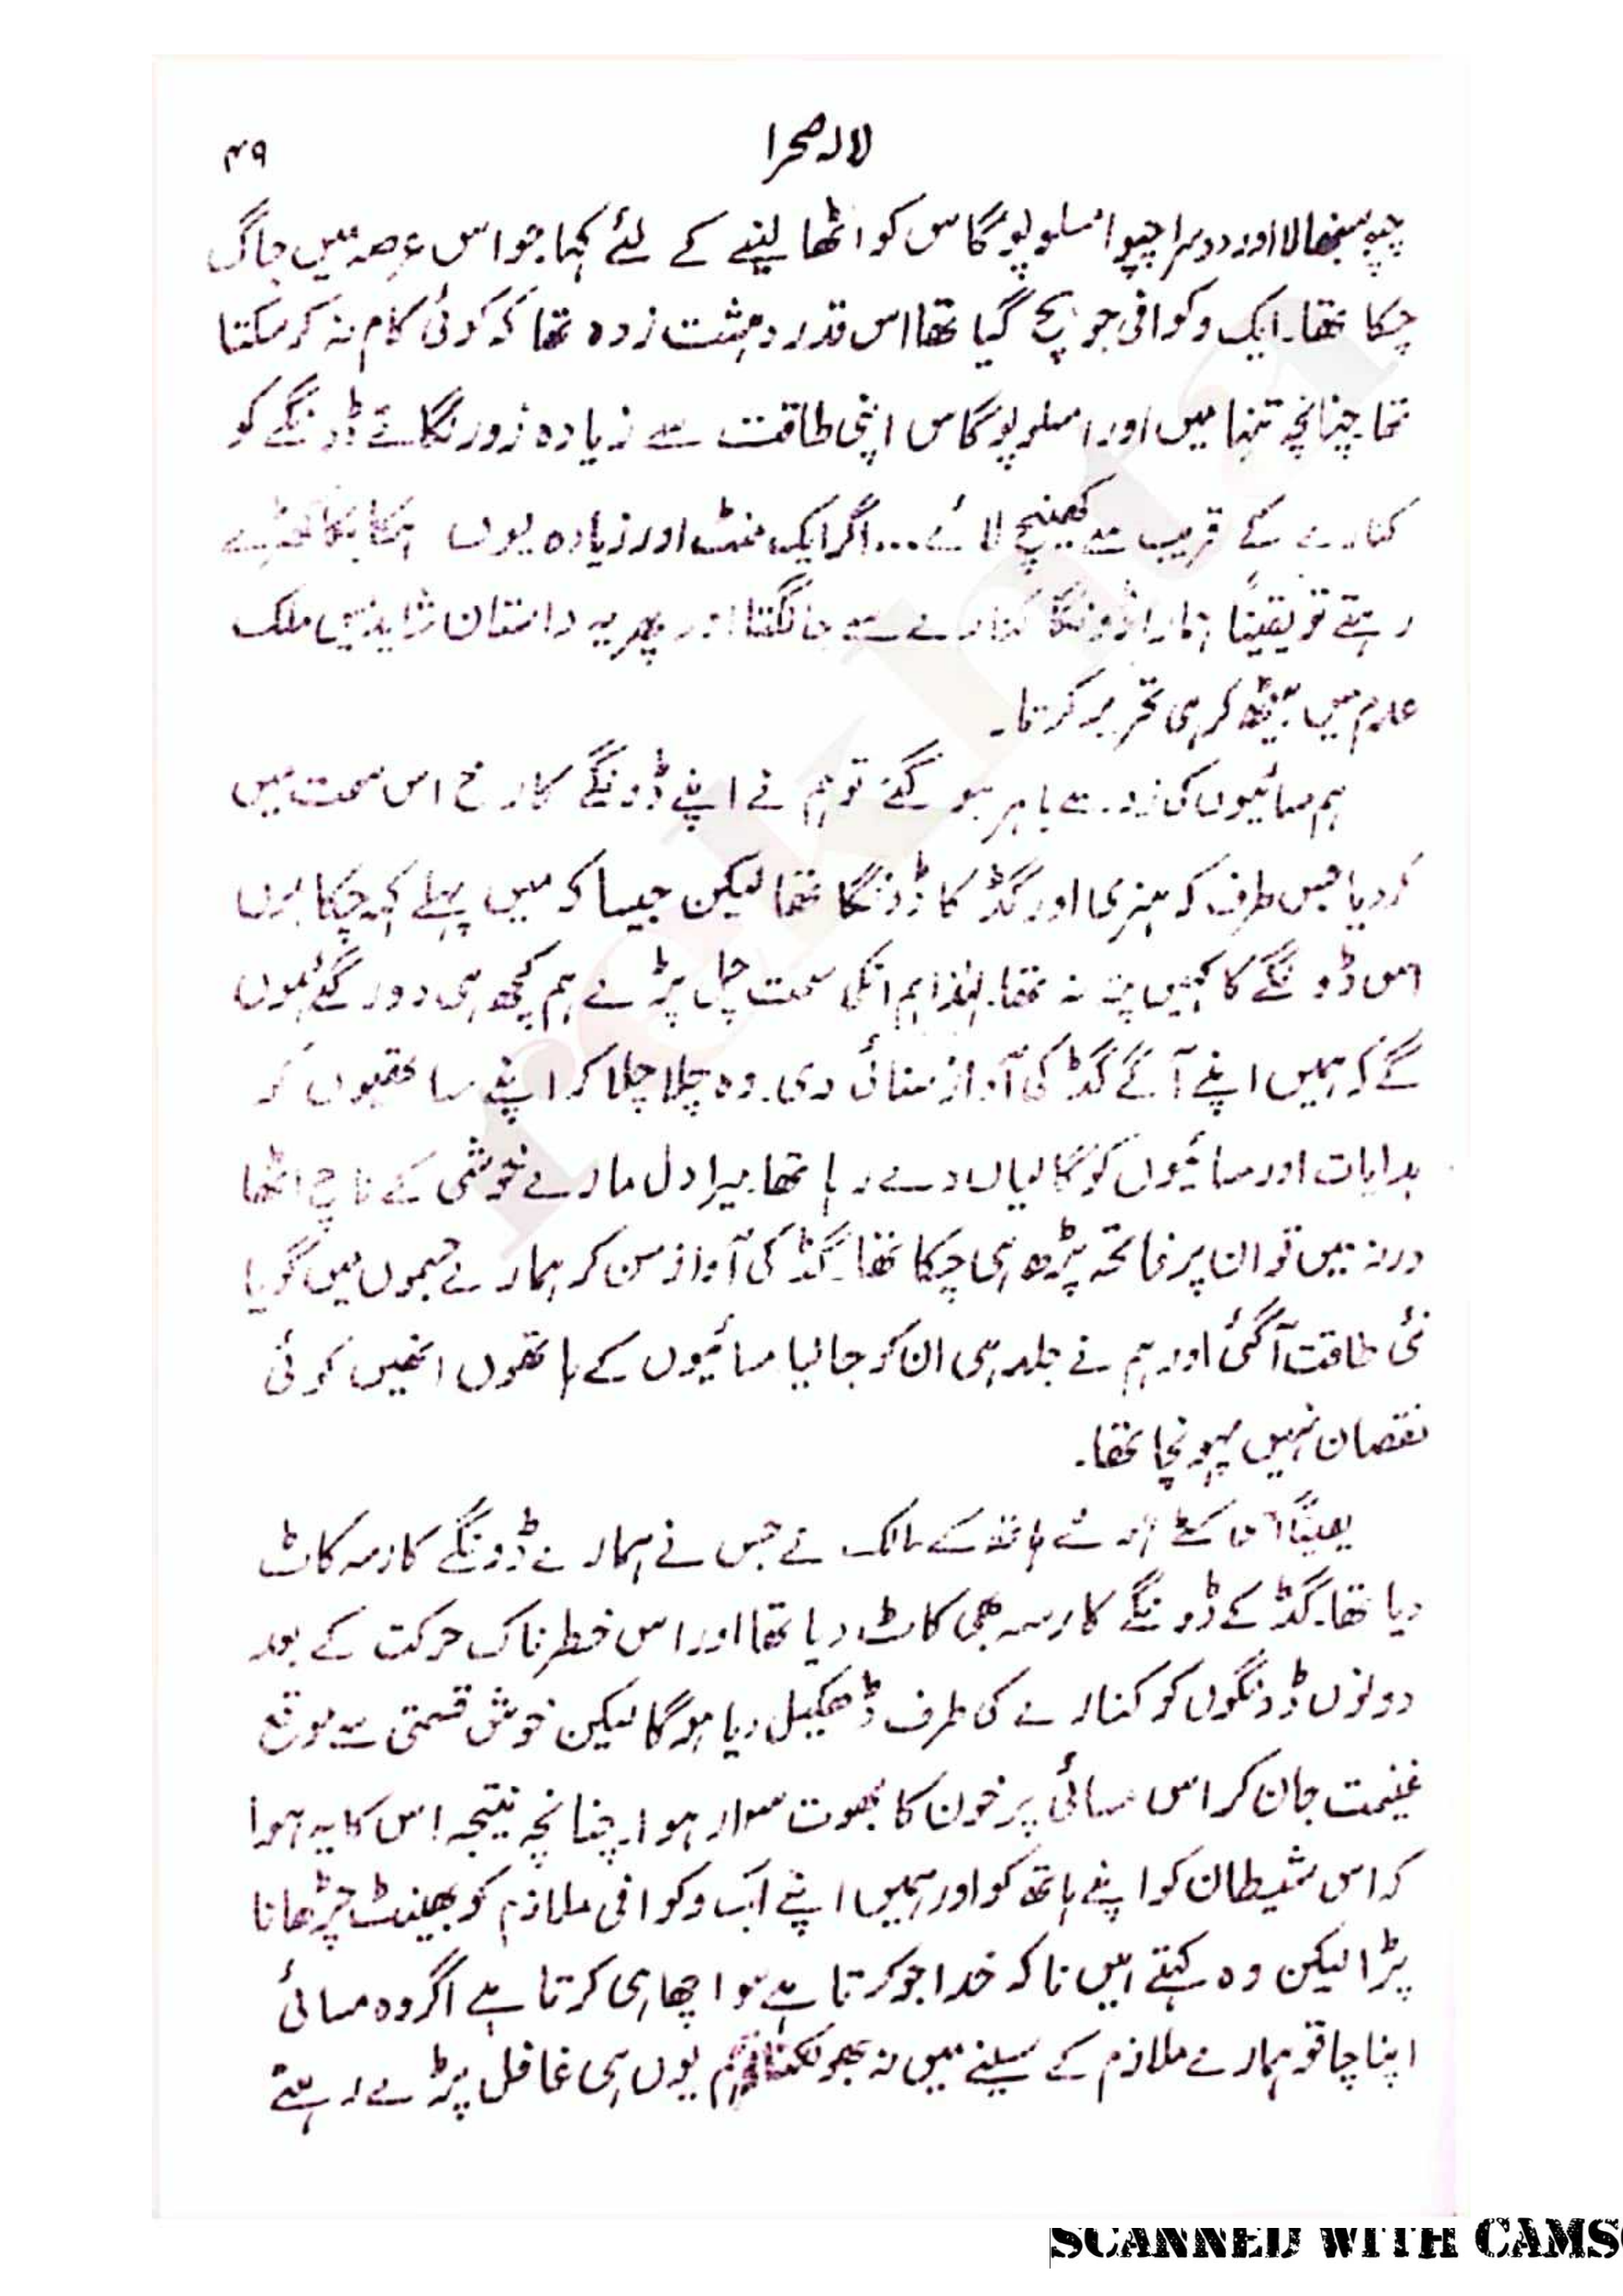 لالہ صحرا
۴۹
چپو سنبھالا اور دوسرا چپو امسلوپوگاس کو اٹھا لینے کے لئے کہا جو اس عرصہ میں جاگ
چکا تھا۔ ایک وکوافی جو بچ گیا تھا اس قدر دہشت زدہ تھا کہ کوئی کام نہ کر سکتا
تھا چنانچہ تنہا میں اور امسلوپوگاس اپنی طاقت سے زیادہ زور لگائے ڈونگے کو
کنارے کے قریب سے کھینچ لائے... اگر ایک منٹ اور زیادہ یوں ہکا بکا کھڑے
رہتے تو یقیناً ہمارا ڈونگا کنارے سے جا لگتا اور پھر یہ داستان شاید میں ملک
عدم میں بیٹھ کر ہی تحریر کرتا۔
ہم مسائیوں کی زد سے باہر ہو گئے تو ہم نے اپنے ڈونگے کا رخ اس سمت میں
کر دیا جس طرف کہ ہنری اور گڈ کا ڈونگا تھا لیکن جیسا کہ میں پہلے کہہ چکا ہوں
اس ڈونگے کا کہیں پتہ نہ تھا۔ لہٰذا ہم انکی سمت چل پڑے ہم کچھ ہی دور گئے ہوں
گے کہ ہمیں اپنے آگے گڈ کی آواز سنائی دی۔ وہ چلا چلا کر اپنے ساتھیوں کو
ہدایات اور مسائیوں کو گالیاں دے رہا تھا۔ میرا دل مارے خوشی کے ناچ اٹھا
ورنہ میں تو ان پر فاتحہ پڑھ ہی چکا تھا۔ گڈ کی آواز سن کر ہمارے جسموں میں گویا
نئی طاقت آ گئی اور ہم نے جلد ہی ان کو جا لیا مسائیوں کے ہاتھوں انھیں کوئی
نقصان نہیں پہونچا تھا۔
یقیناً اس کٹے ہوئے ہاتھ کے مالک نے جس نے ہمارے ڈونگے کا رسہ کاٹ
دیا تھا۔ گڈ کے ڈونگے کا رسہ بھی کاٹ دیا تھا اور اس خطرناک حرکت کے بعد
دونوں ڈونگوں کو کنارے کی طرف ڈھکیل دیا ہوگا لیکن خوش قسمتی سے موقع
غنیمت جان کر اس مسائی پر خون کا بھوت سوار ہوا۔ چنانچہ نتیجہ اس کا یہ ہوا
کہ اس شیطان کو اپنے ہاتھ کو اور ہمیں اپنے ایک وکوافی ملازم کو بھینٹ چڑھانا
پڑا لیکن وہ کہتے ہیں نا کہ خدا جو کرتا ہے سو اچھا ہی کرتا ہے اگر وہ مسائی
اپنا چاقو ہمارے ملازم کے سینے میں نہ بھونکتا تو ہم یوں ہی غافل پڑے رہتے
SCANNED WITH CAMS
rekhta